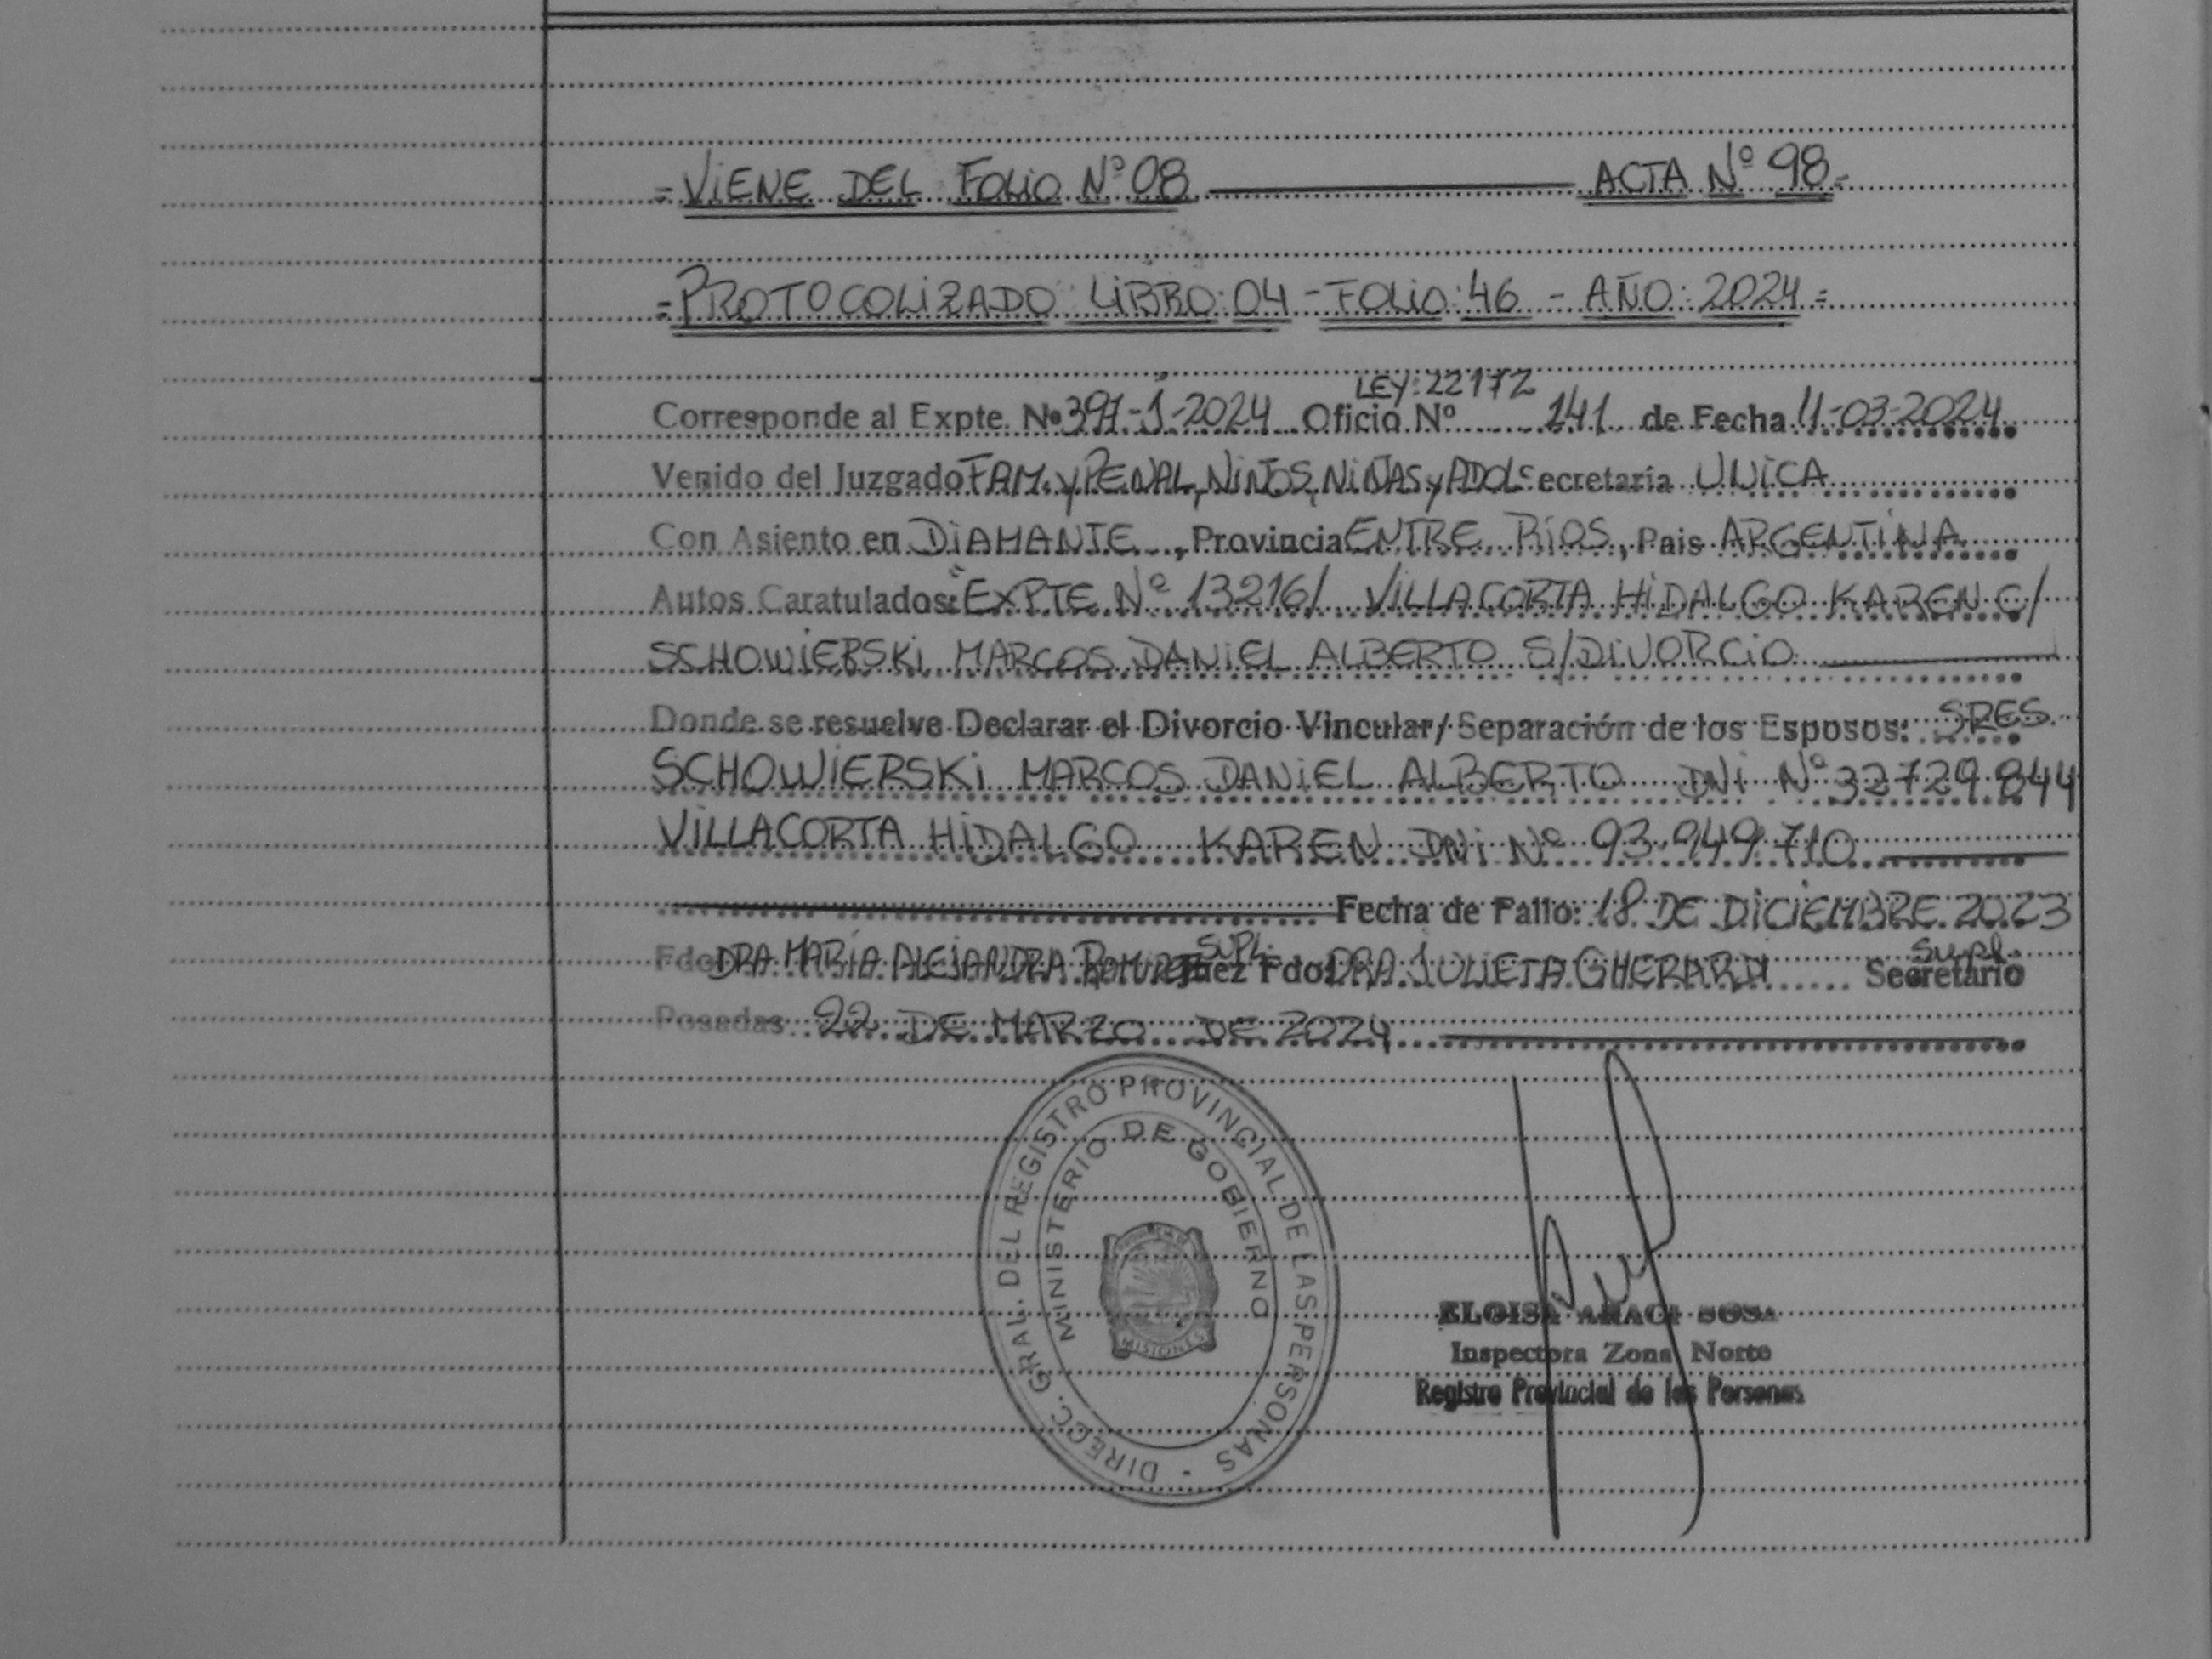 = VIENE DEL FOLIO Nº 08 ACTA Nº 98.=
= PROTOCOLIZADO LIBRO: 04 - FOLIO: 46 - AÑO: 2024 =
LEY: 22172
Corresponde al Expte. Nº 391-J-2024 Oficio Nº 141 de Fecha 11-03-2024
Venido del Juzgado FAM. y PENAL, NIÑOS, NIÑAS y ADOL Secretaría UNICA
Con Asiento en DIAMANTE, Provincia ENTRE RIOS, Pais ARGENTINA
Autos Caratulados: "EXPTE Nº 13216/ VILLACORTA HIDALGO KAREN C/
SCHOWIERSKI MARCOS DANIEL ALBERTO S/DIVORCIO
Donde se resuelve Declarar el Divorcio Vincular/Separación de los Esposos: SRES.
SCHOWIERSKI MARCOS DANIEL ALBERTO DNI Nº 32729.844
VILLACORTA HIDALGO KAREN DNI Nº 93.949.710
Fecha de Fallo: 18 DE DICIEMBRE 2023
Fdo: DRA MARÍA ALEJANDRA Juez SUPL. Fdo: DRA JULIETA GHERARDI Secretario Supl.
Posadas 22 DE MARZO DE 2024
DIRECC. GRAL. DEL REGISTRO PROVINCIAL DE LAS PERSONAS -
MINISTERIO DE GOBIERNO
MISIONES
ELOISA SOSA
Inspectora Zona Norte
Registro Provincial de las Personas